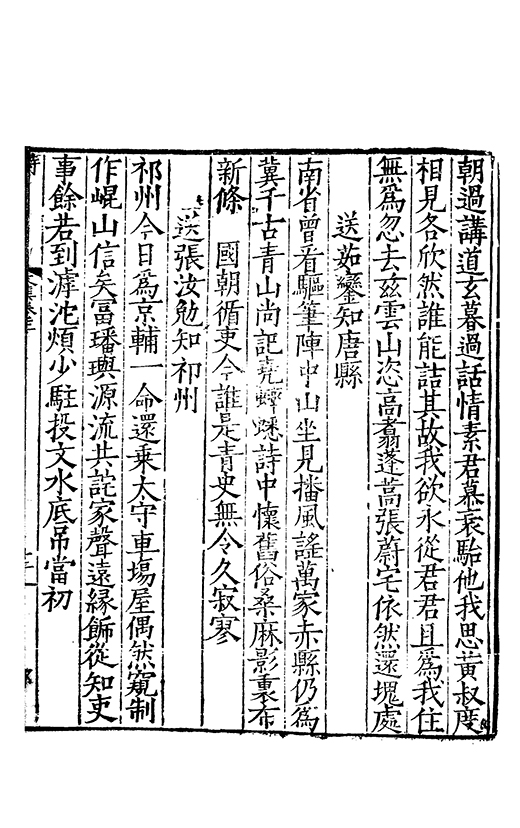 朝過講道玄暮過話情素君慕哀駘他我思黃叔度
相見各欣然誰能詰其故我欲永從君君且爲我住
無爲忽去茲雲山恣高翥蓬蒿張蔚宅依然還塊處
送茹鑾知唐縣
南省曾看驅筆陣中山坐見播風謠萬家赤縣仍爲
冀千古青山尚記堯蟋蟀詩中懷舊俗桑麻影裏布
新條　國朝循吏今誰是青史無令久寂寥
送張汝勉知祁州
祁州今日爲京輔一命還乘太守車場屋偶然窺制
作崐山信矣富璠璵源流共詫家聲遠緣飾從知吏
事餘若到滹沱煩少駐投文水底吊當初